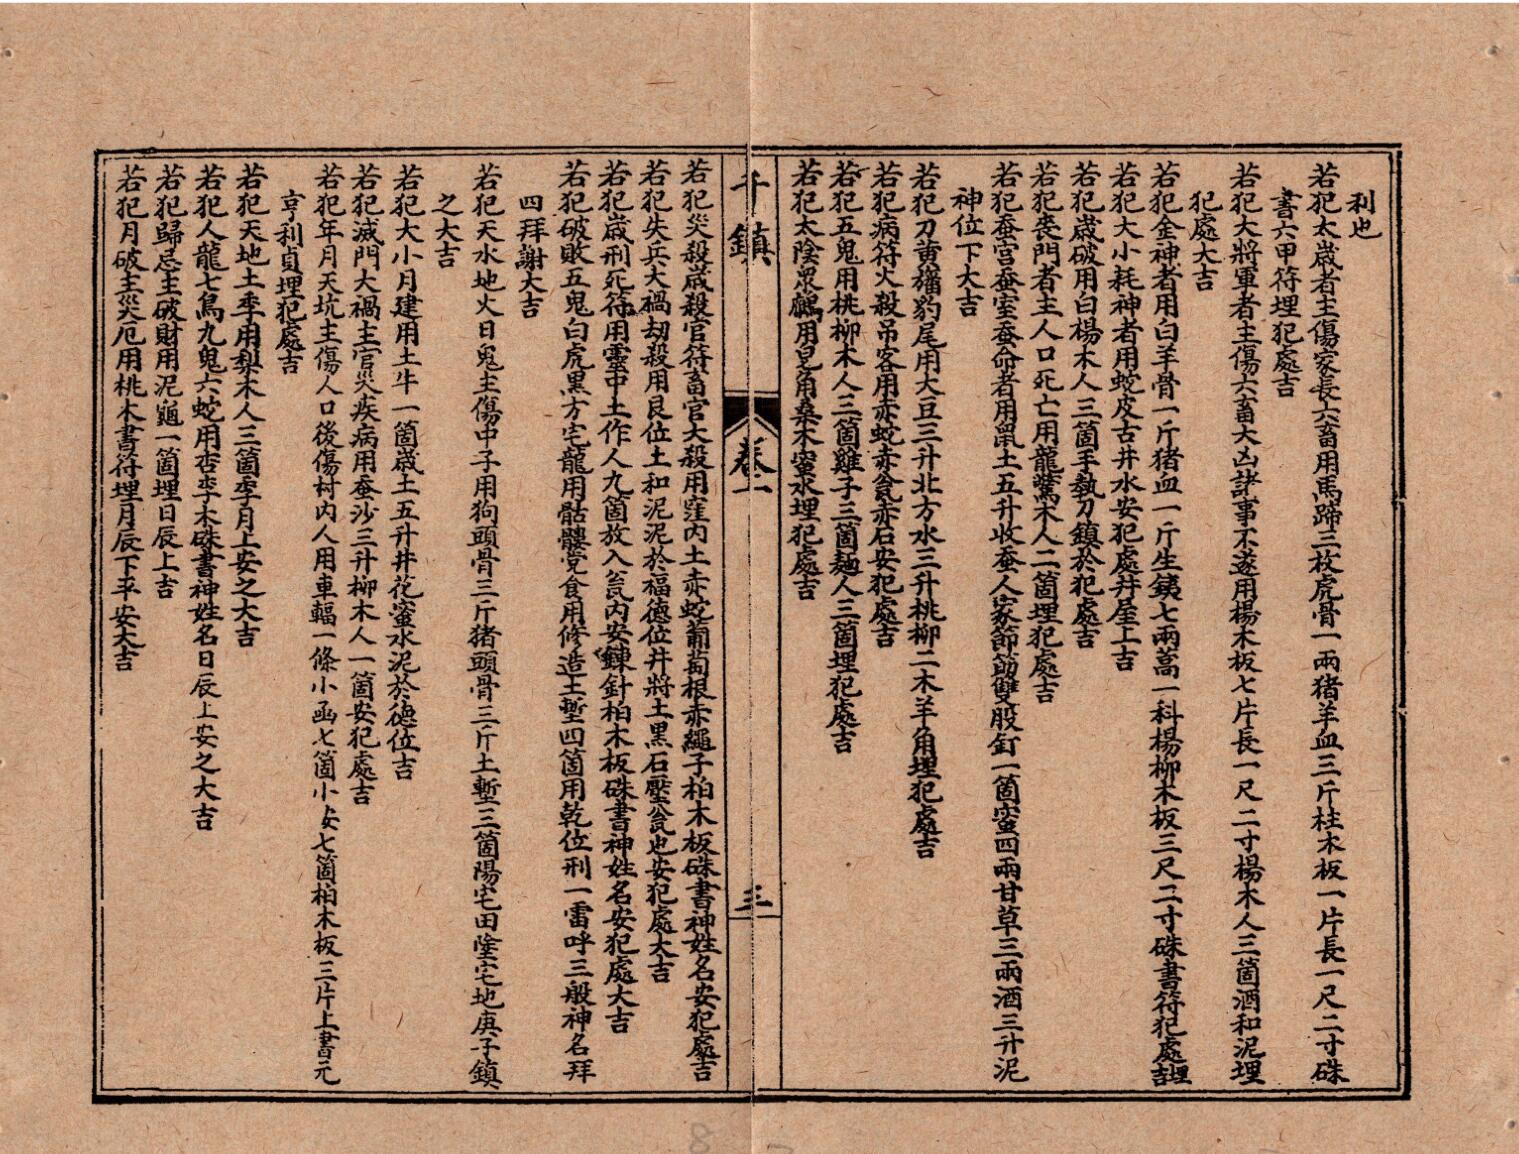 利也
若犯太歲者主傷家長六畜用馬蹄三枚虎骨一兩猪羊血三斤柱木板一片長一尺二寸硃
書六甲符埋犯處吉
若犯大將軍者主傷六畜大凶諸事不遂用楊木板七片長一尺二寸楊木人三箇酒和泥埋
犯處大吉
若犯金神者用白羊骨一斤猪血一斤生銕七兩蒿一科楊柳木板三尺二寸硃書符犯處埋吉
若犯大小耗神者用蛇皮古井水安犯處井屋上吉
若犯歲破用白楊木人三箇手執刀鎮於犯處吉
若犯喪門者主人口死亡用龍駕木人二箇埋犯處吉
若犯蚕宫蚕室蚕命者用鼠土五升收蚕人家節筯雙股釘一箇蜜四兩甘草三兩酒三升泥
神位下大吉
若犯刀黄旛豹尾用大豆三升北方水三升桃柳二木羊角埋犯處吉
若犯病符火殺吊客用赤蛇赤瓮赤石安犯處吉
若犯五鬼用桃柳木人三箇雞子三箇麺人三箇埋犯處吉
若犯太陰衆鸕用皀角桑木蜜水埋犯處吉
千鎮 卷一 三
若犯災殺歲殺官符畜官大殺用窪内土赤蛇葡萄根赤繩子柏木板硃書神姓名安犯處吉
若犯失兵大禍刼殺用艮位土和泥泥於福德位井將土黑石壓瓮也安犯處大吉
若犯歲刑死符用靈中土作人九箇放入瓮内安鍊針柏木板硃書神姓名安犯處大吉
若犯破敗五鬼白虎黒方宅龍用骷髏党食用修造土塹四箇用乾位刑一雷呼三般神名拜
四拜謝大吉
若犯天水地火日鬼主傷中子用狗頭骨三斤猪頭骨三斤土塹三箇陽宅田陞宅地庚子鎮
之大吉
若犯大小月建用土牛一箇歲土五升井花蜜水泥於德位吉
若犯滅門大禍主官災疾病用蚕沙三升柳木人一箇安犯處吉
若犯年月天坑主傷人口後傷村内人用車輻一條小函七箇小安七箇柏木板三片上書元
亨利貞埋犯處吉
若犯天地土季用梨木人三箇季月上安之大吉
若犯人龍七鳥九鬼六蛇用杏李木硃書神姓名日辰上安之大吉
若犯歸忌主破財用泥龜一箇埋日辰上吉
若犯月破主災厄用桃木書符埋月辰下平安大吉